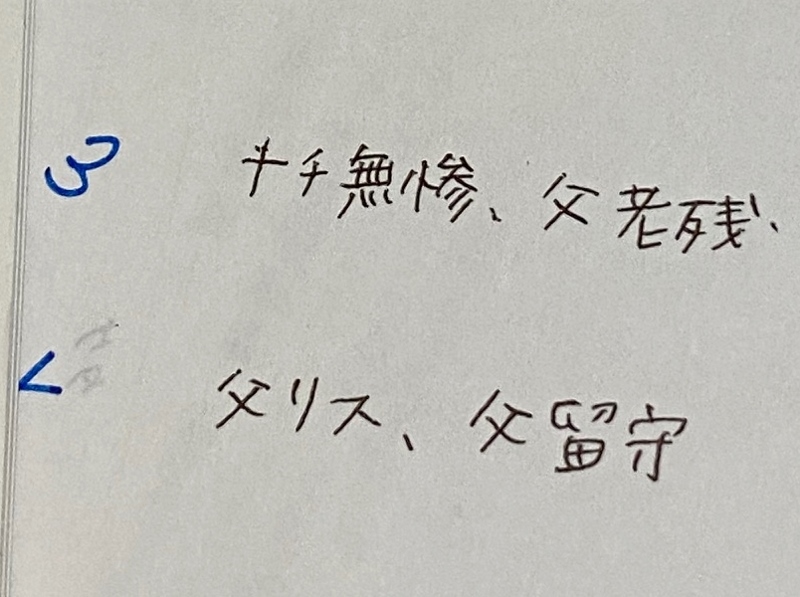 3 ナチ無惨、父老残、
< 父リス、父留守